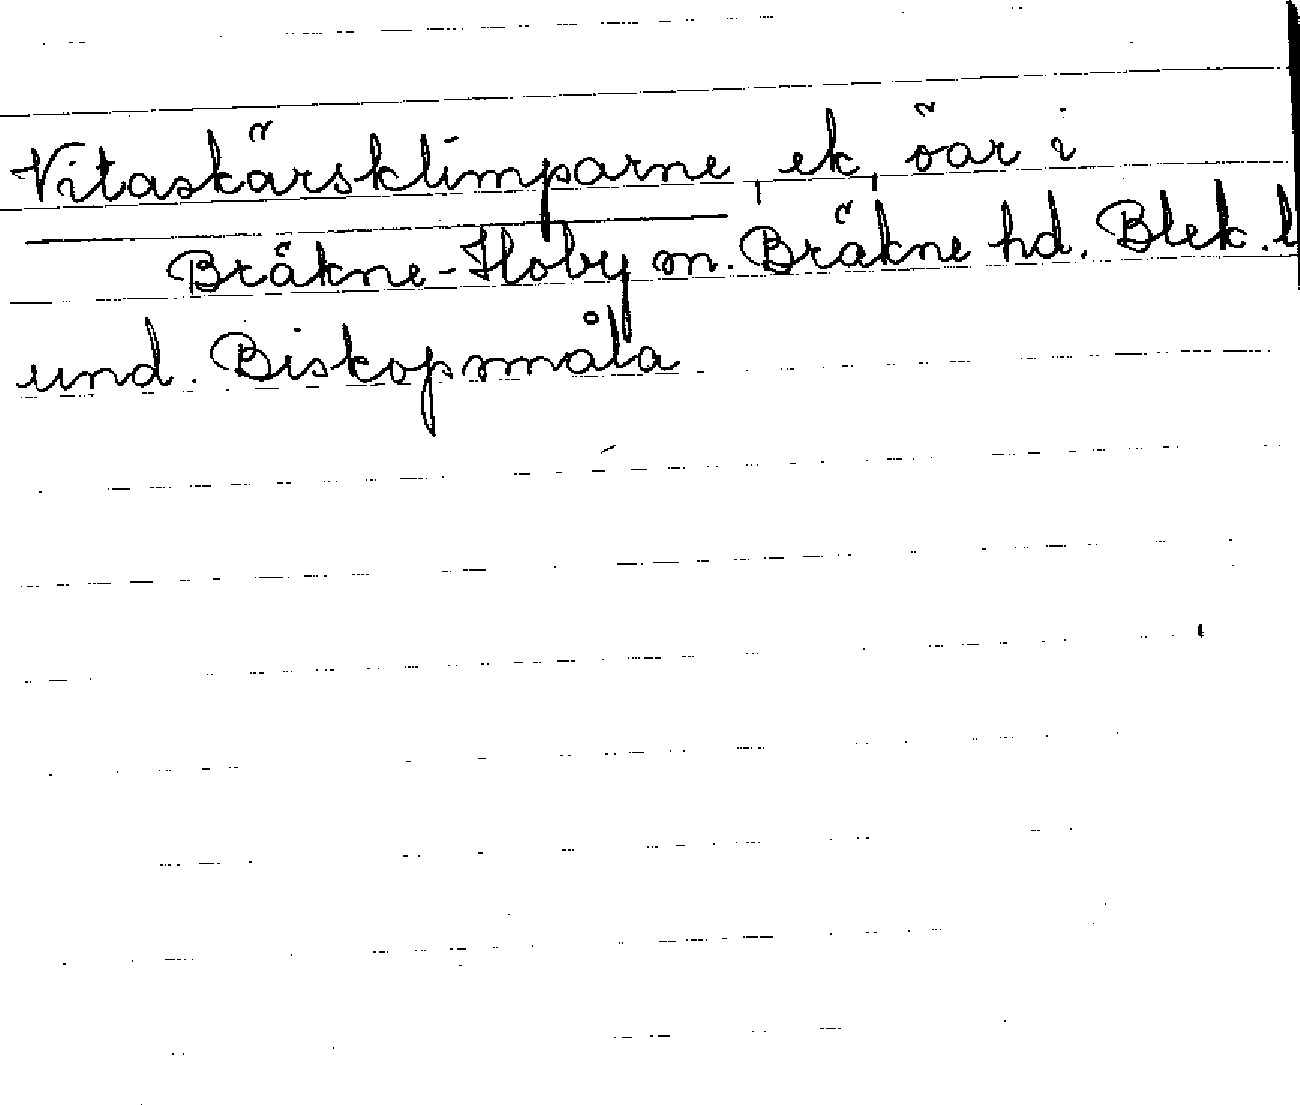 Vitaskärsklimparne, ek, öar i
Bräkne-Hoby sn. Bräkne hd. Blek. l
und. Biskopsmåla